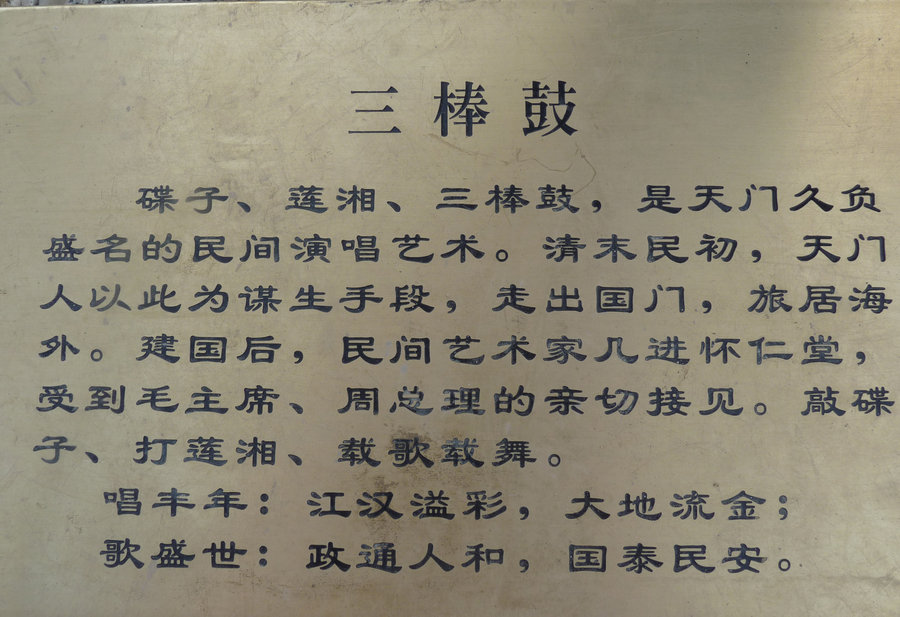 三棒鼓
碟子、莲湘、三棒鼓，是天门久负
盛名的民间演唱艺术。清末民初，天门
人以此为谋生手段，走出国门，旅居海
外。建国后，民间艺术家几进怀仁堂，
受到毛主席、周总理的亲切接见。敲碟
子、打莲湘、载歌载舞。
唱丰年：江汉溢彩，大地流金；
歌盛世：政通人和，国泰民安。